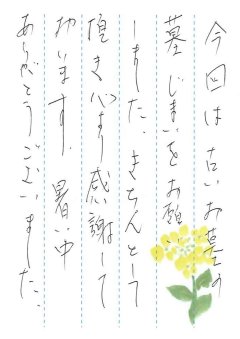 今回は古いお墓の
墓じまいをお願い
しました。きちんとして
頂き心より感謝して
おります。暑い中
ありがとうございました。